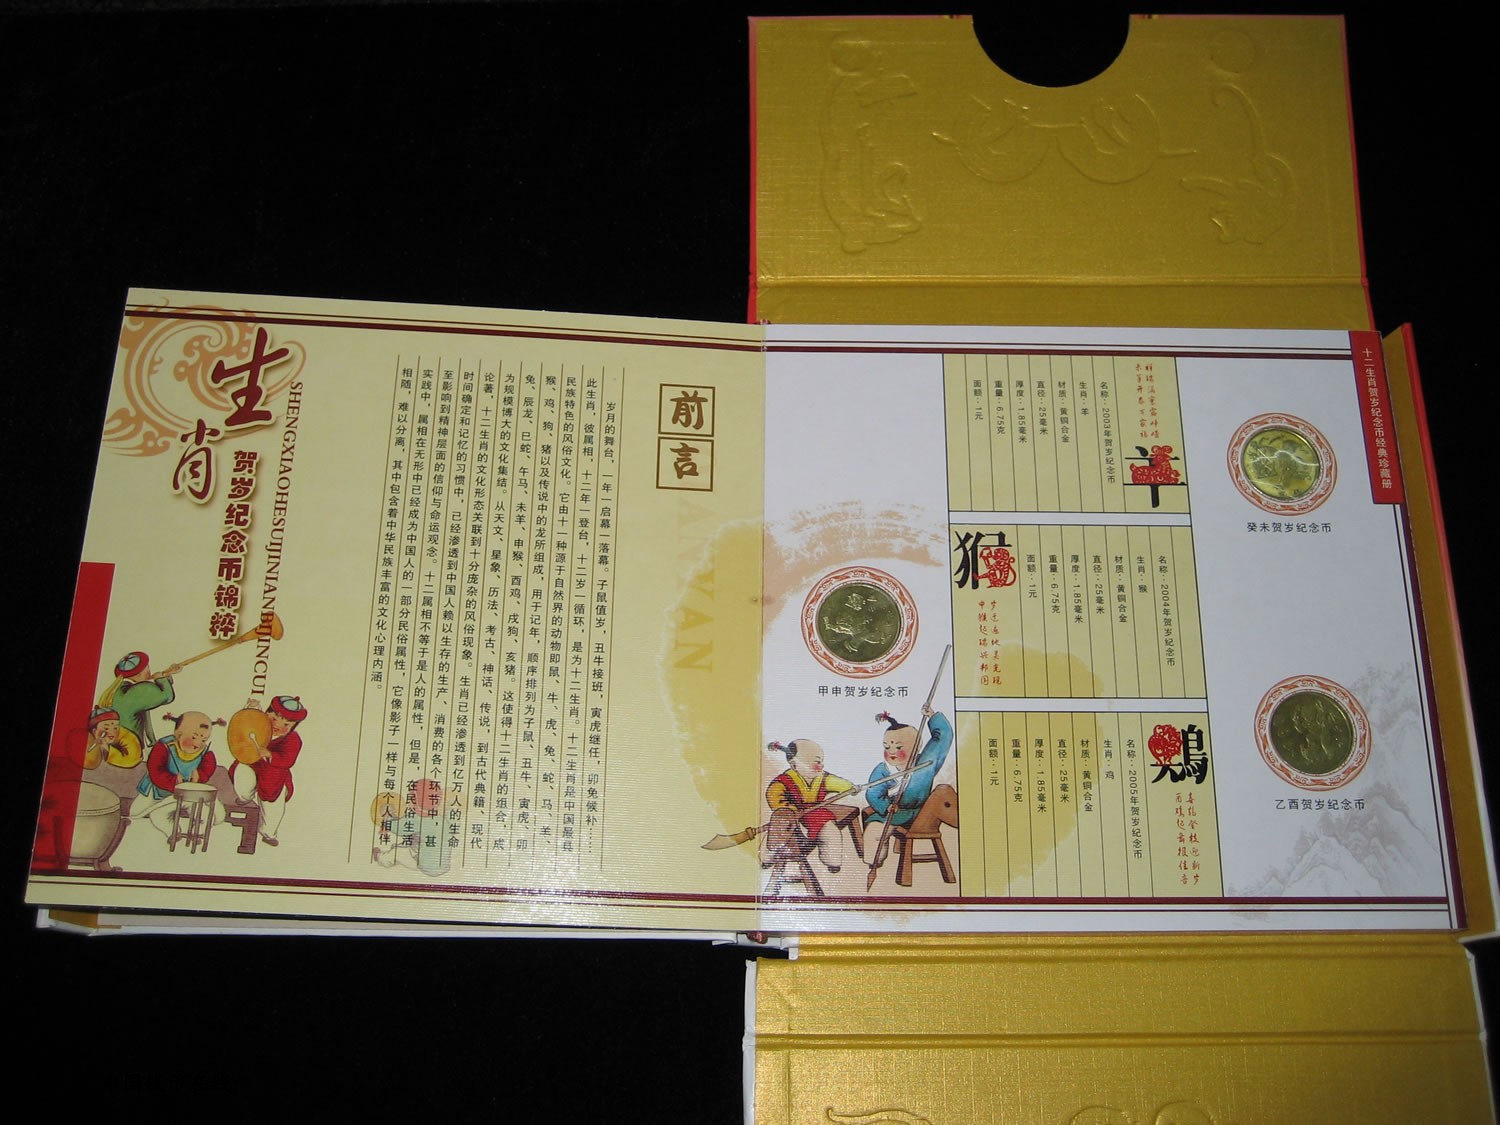 生肖
贺岁纪念币锦粹
SHENGXIAOHESUIJINIANBIJINCUI
前言
岁月的舞台，一年一启幕一落幕。子鼠值岁，丑牛接班，寅虎继任，卯兔候补……
此生肖，彼属相，十二年一登台，十二岁一循环，是为十二生肖。十二生肖是中国最具
民族特色的风俗文化。它由十一种源于自然界的动物即鼠、牛、虎、兔、蛇、马、羊、
猴、鸡、狗、猪以及传说中的龙所组成，用于记年，顺序排列为子鼠、丑牛、寅虎、卯
兔、辰龙、巳蛇、午马、未羊、申猴、酉鸡、戌狗、亥猪。这使得十二生肖的组合，成
为规模博大的文化集结。从天文、星象、历法、考古、神话、传说，到古代典籍、现代
论著，十二生肖的文化形态关联到十分庞杂的风俗现象。生肖已经渗透到亿万人的生命
时间确定和记忆的习惯中，已经渗透到中国人赖以生存的生产、消费的各个环节中，甚
至影响到精神层面的信仰与命运观念。十二属相不等于是人的属性，但是，在民俗生活
实践中，属相在无形中已经成为中国人的一部分民俗属性，它像影子一样与每个人相伴
相随，难以分离，其中包含着中华民族丰富的文化心理内涵。
十二生肖贺岁纪念币经典珍藏册
癸未贺岁纪念币
羊
名称：2003年贺岁纪念币
生肖：羊
材质：黄铜合金
直径：25毫米
厚度：1.85毫米
重量：6.75克
面额：1元
甲申贺岁纪念币
猴
名称：2004年贺岁纪念币
生肖：猴
材质：黄铜合金
直径：25毫米
厚度：1.85毫米
重量：6.75克
面额：1元
乙酉贺岁纪念币
鷄
名称：2005年贺岁纪念币
生肖：鸡
材质：黄铜合金
直径：25毫米
厚度：1.85毫米
重量：6.75克
面额：1元